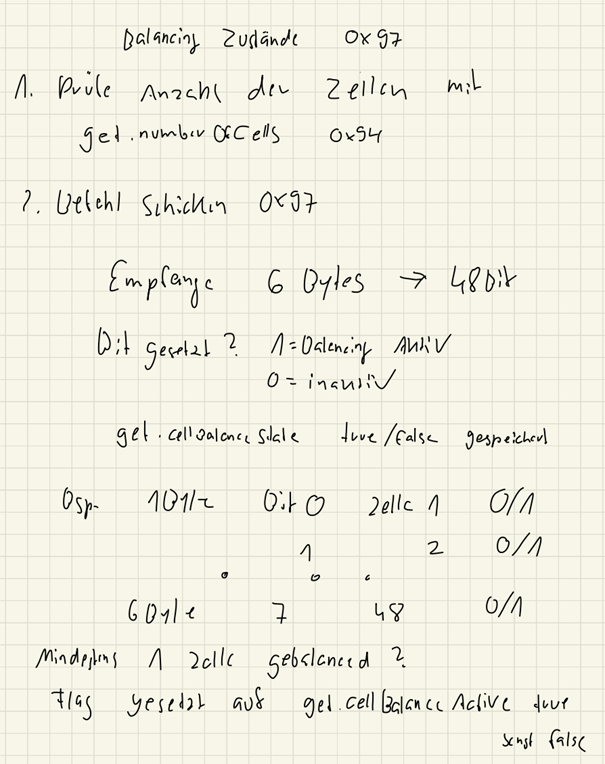 Balancing Zustände 0x97
1. Prüfe Anzahl der Zellen mit
get.numberOfCells 0x94
2. Befehl schicken 0x97
Empfange 6 Bytes → 48Bit
Bit gesetzt? 1=Balancing Aktiv
0 = inaktiv
get.cellBalanceState true/false gespeichert
Bsp. 1Byte Bit 0 Zelle 1 0/1
1 2 0/1
. . .
6Byte 7 48 0/1
Mindestens 1 Zelle gebalanced?
Flag gesetzt auf get.cellBalanceActive true
sonst false